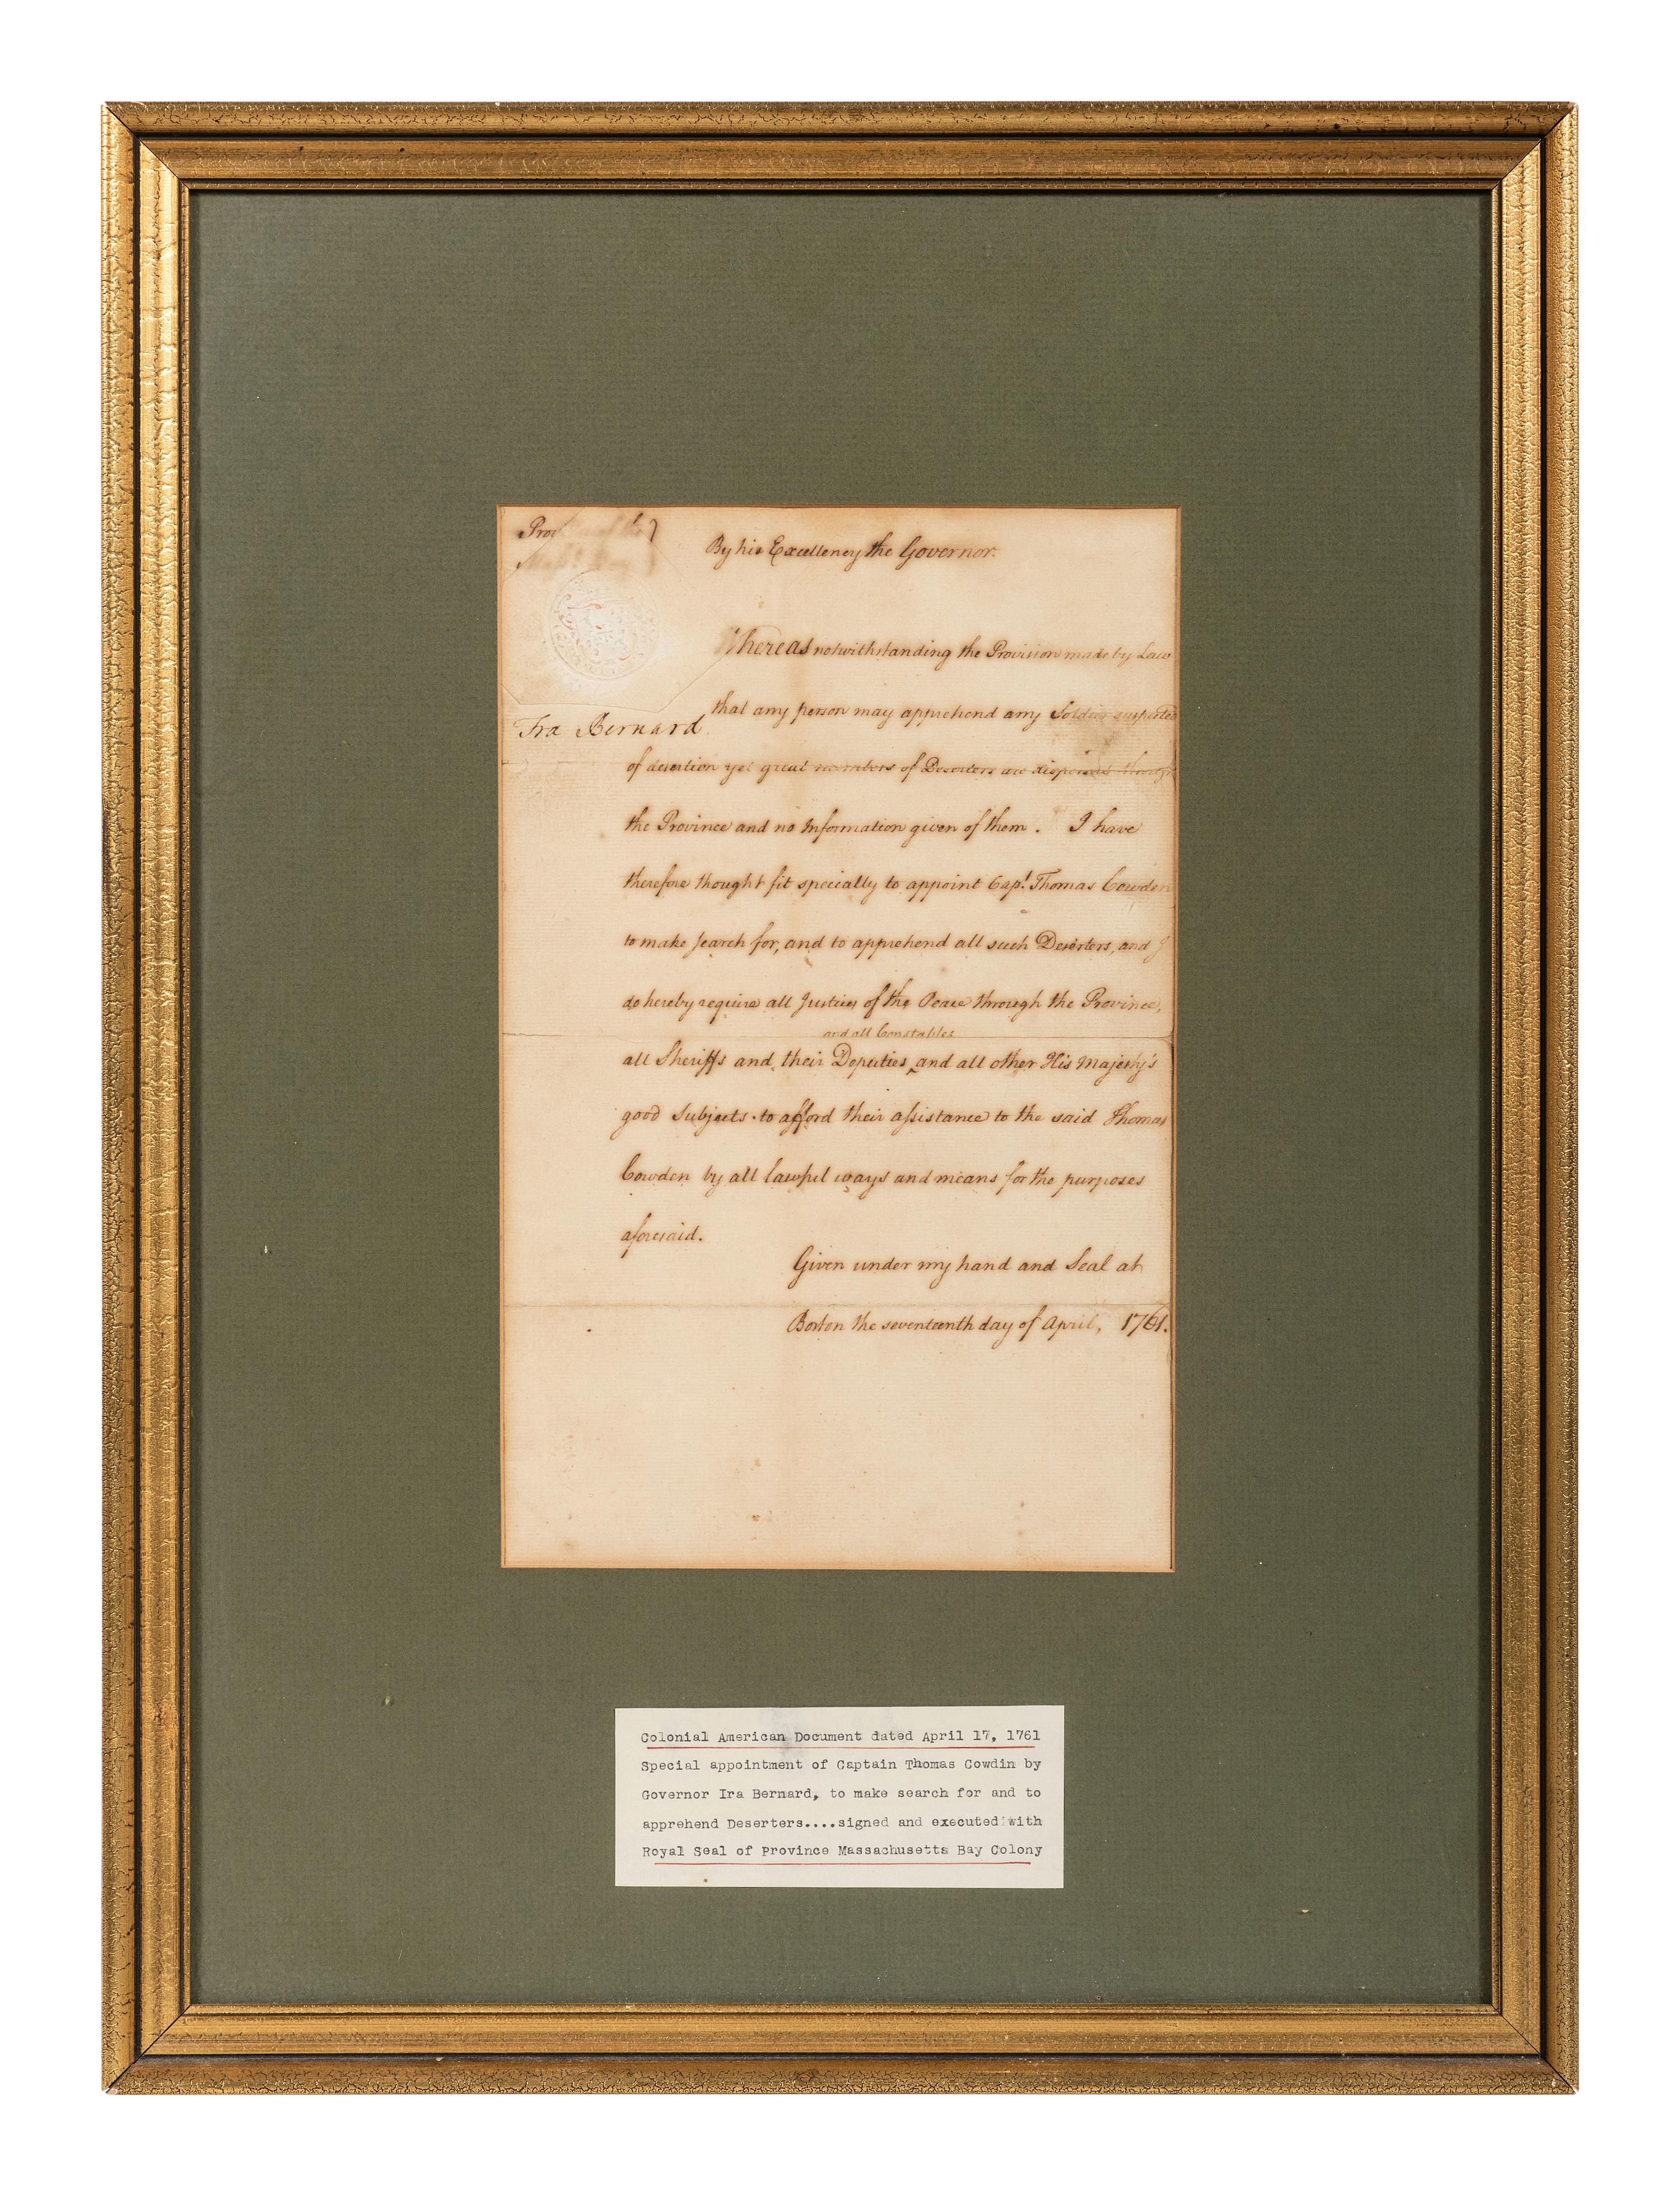 By his Excellency the Governor.
Whereas notwithstanding the Provision made by Law
that any person may apprehend any Soldier suspected
Fra Bernard
of desertion yet great numbers of Deserters are dispersed through
the Province and no Information given of them. I have
therefore thought fit specially to appoint Capt Thomas Cowden
to make search for, and to apprehend all such Deserters, and I
do hereby require all Justices of the Peace through the Province,
and all Constables
all Sheriffs and their Deputies ‸ and all other His Majesty's
good Subjects to afford their assistance to the said Thomas
Cowden by all lawful ways and means for the purposes
aforesaid.
Given under my hand and Seal at
Boston the seventeenth day of April, 1761.
Colonial American Document dated April 17, 1761
Special appointment of Captain Thomas Cowdin by
Governor Ira Bernard, to make search for and to
apprehend Deserters....signed and executed with
Royal Seal of Province Massachusetts Bay Colony